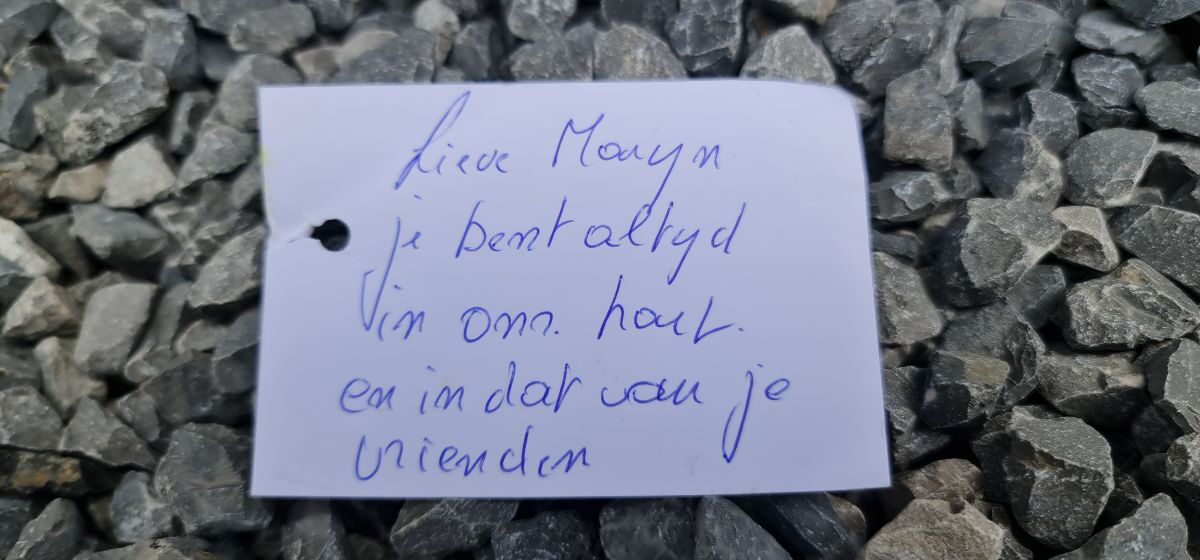 Lieve Maryn
je bent altyd
in ons hart.
en in dat van je
vrienden